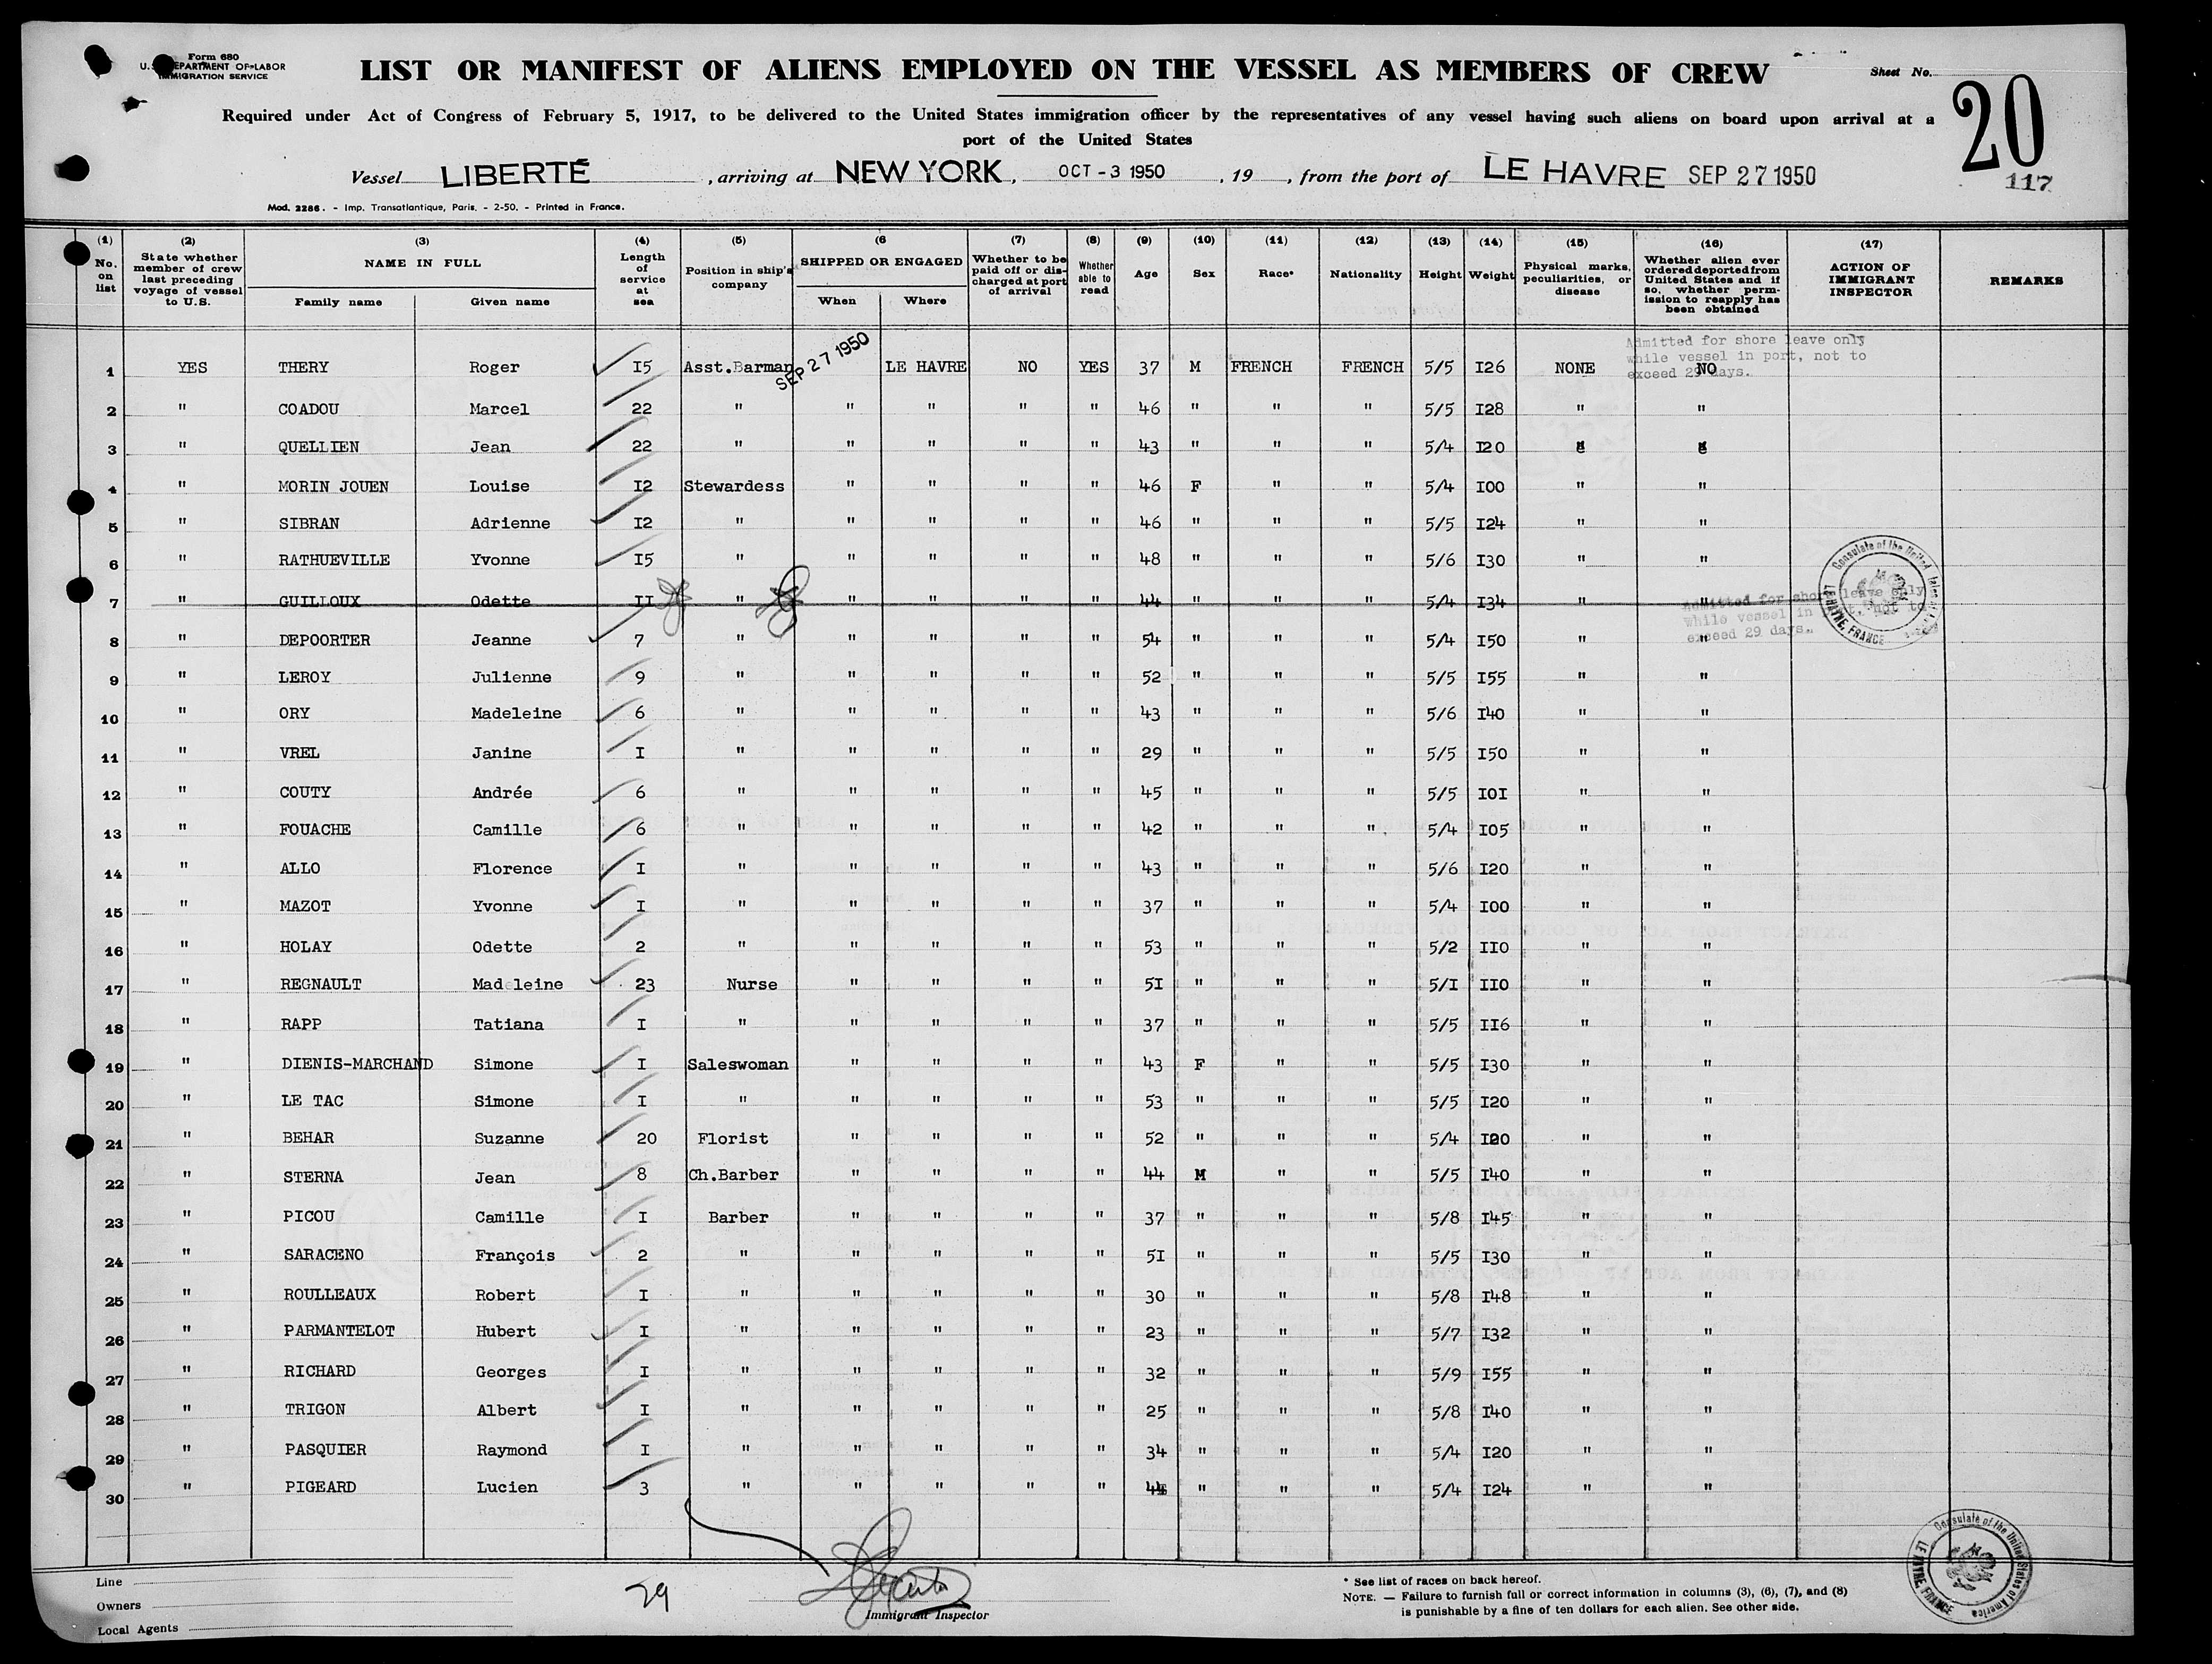 Form 680
U.S. DEPARTMENT OF LABOR
IMMIGRATION SERVICE
LIST OR MANIFEST OF ALIENS EMPLOYED ON THE VESSEL AS MEMBERS OF CREW
Sheet No. 20
Required under Act of Congress of February 5, 1917, to be delivered to the United States immigration officer by the representatives of any vessel having such aliens on board upon arrival at a
port of the United States
117
Vessel LIBERTÉ, arriving at NEW YORK, OCT - 3 1950, 19, from the port of LE HAVRE SEP 27 1950
Mod. 2286. - Imp. Transatlantique, Paris. - 2-50. - Printed in France.
(1) No. on list (2) State whether member of crew last preceding voyage of vessel to U.S. (3) NAME IN FULL Family name Given name (4) Length of service at sea (5) Position in ship's company (6 SHIPPED OR ENGAGED When Where (7) Whether to be paid off or discharged at port of arrival (8) Whether able to read (9) Age (10) Sex (11) Race* (12) Nationality (13) Height (14) Weight (15) Physical marks, peculiarities, or disease (16) Whether alien ever ordered deported from United States and if so, whether permission to reapply has been obtained (17) ACTION OF IMMIGRANT INSPECTOR REMARKS
Admitted for shore leave only
while vessel in port, not to
exceed 29 days.
1 YES THERY Roger I5 Asst.Barman SEP 27 1950 LE HAVRE NO YES 37 M FRENCH FRENCH 5/5 I26 NONE NO
2 " COADOU Marcel 22 " " " " " 46 " " " 5/5 I28 " "
3 " QUELLIEN Jean 22 " " " " " 43 " " " 5/4 I20 " "
4 " MORIN JOUEN Louise I2 Stewardess " " " " 46 F " " 5/4 I00 " "
5 " SIBRAN Adrienne I2 " " " " " 46 " " " 5/5 I24 " "
6 " RATHUEVILLE Yvonne I5 " " " " " 48 " " " 5/6 I30 " "
7 " GUILLOUX Odette II " " " " " 44 " " " 5/4 I34 " "
Admitted for shore leave only
while vessel in port, not to
exceed 29 days.
Consulate of the United States of America
LE HAVRE, FRANCE
8 " DEPOORTER Jeanne 7 " " " " " 54 " " " 5/4 I50 " "
9 " LEROY Julienne 9 " " " " " 52 " " " 5/5 I55 " "
10 " ORY Madeleine 6 " " " " " 43 " " " 5/6 I40 " "
11 " VREL Janine I " " " " " 29 " " " 5/5 I50 " "
12 " COUTY Andrée 6 " " " " " 45 " " " 5/5 I0I " "
13 " FOUACHE Camille 6 " " " " " 42 " " " 5/4 I05 " "
14 " ALLO Florence I " " " " " 43 " " " 5/6 I20 " "
15 " MAZOT Yvonne I " " " " " 37 " " " 5/4 I00 " "
16 " HOLAY Odette 2 " " " " " 53 " " " 5/2 II0 " "
17 " REGNAULT Madeleine 23 Nurse " " " " 5I " " " 5/I II0 " "
18 " RAPP Tatiana I " " " " " 37 " " " 5/5 II6 " "
19 " DIENIS-MARCHAND Simone I Saleswoman " " " " 43 F " " 5/5 I30 " "
20 " LE TAC Simone I " " " " " 53 " " " 5/5 I20 " "
21 " BEHAR Suzanne 20 Florist " " " " 52 " " " 5/4 " "
22 " STERNA Jean 8 Ch.Barber " " " " 44 M " " 5/5 I40 " "
23 " PICOU Camille I Barber " " " " 37 " " " 5/8 I45 " "
24 " SARACENO François 2 " " " " " 5I " " " 5/5 I30 " "
25 " ROULLEAUX Robert I " " " " " 30 " " " 5/8 I48 " "
26 " PARMANTELOT Hubert I " " " " " 23 " " " 5/7 I32 " "
27 " RICHARD Georges I " " " " " 32 " " " 5/9 I55 " "
28 " TRIGON Albert I " " " " " 25 " " " 5/8 I40 " "
29 " PASQUIER Raymond I " " " " " 34 " " " 5/4 I20 " "
30 " PIGEARD Lucien 3 " " " " " " " " 5/4 I24 " "
Line
Owners
Local Agents
29
Immigrant Inspector
* See list of races on back hereof.
NOTE. — Failure to furnish full or correct information in columns (3), (6), (7), and (8)
is punishable by a fine of ten dollars for each alien. See other side.
Consulate of the United States of America
LE HAVRE, FRANCE